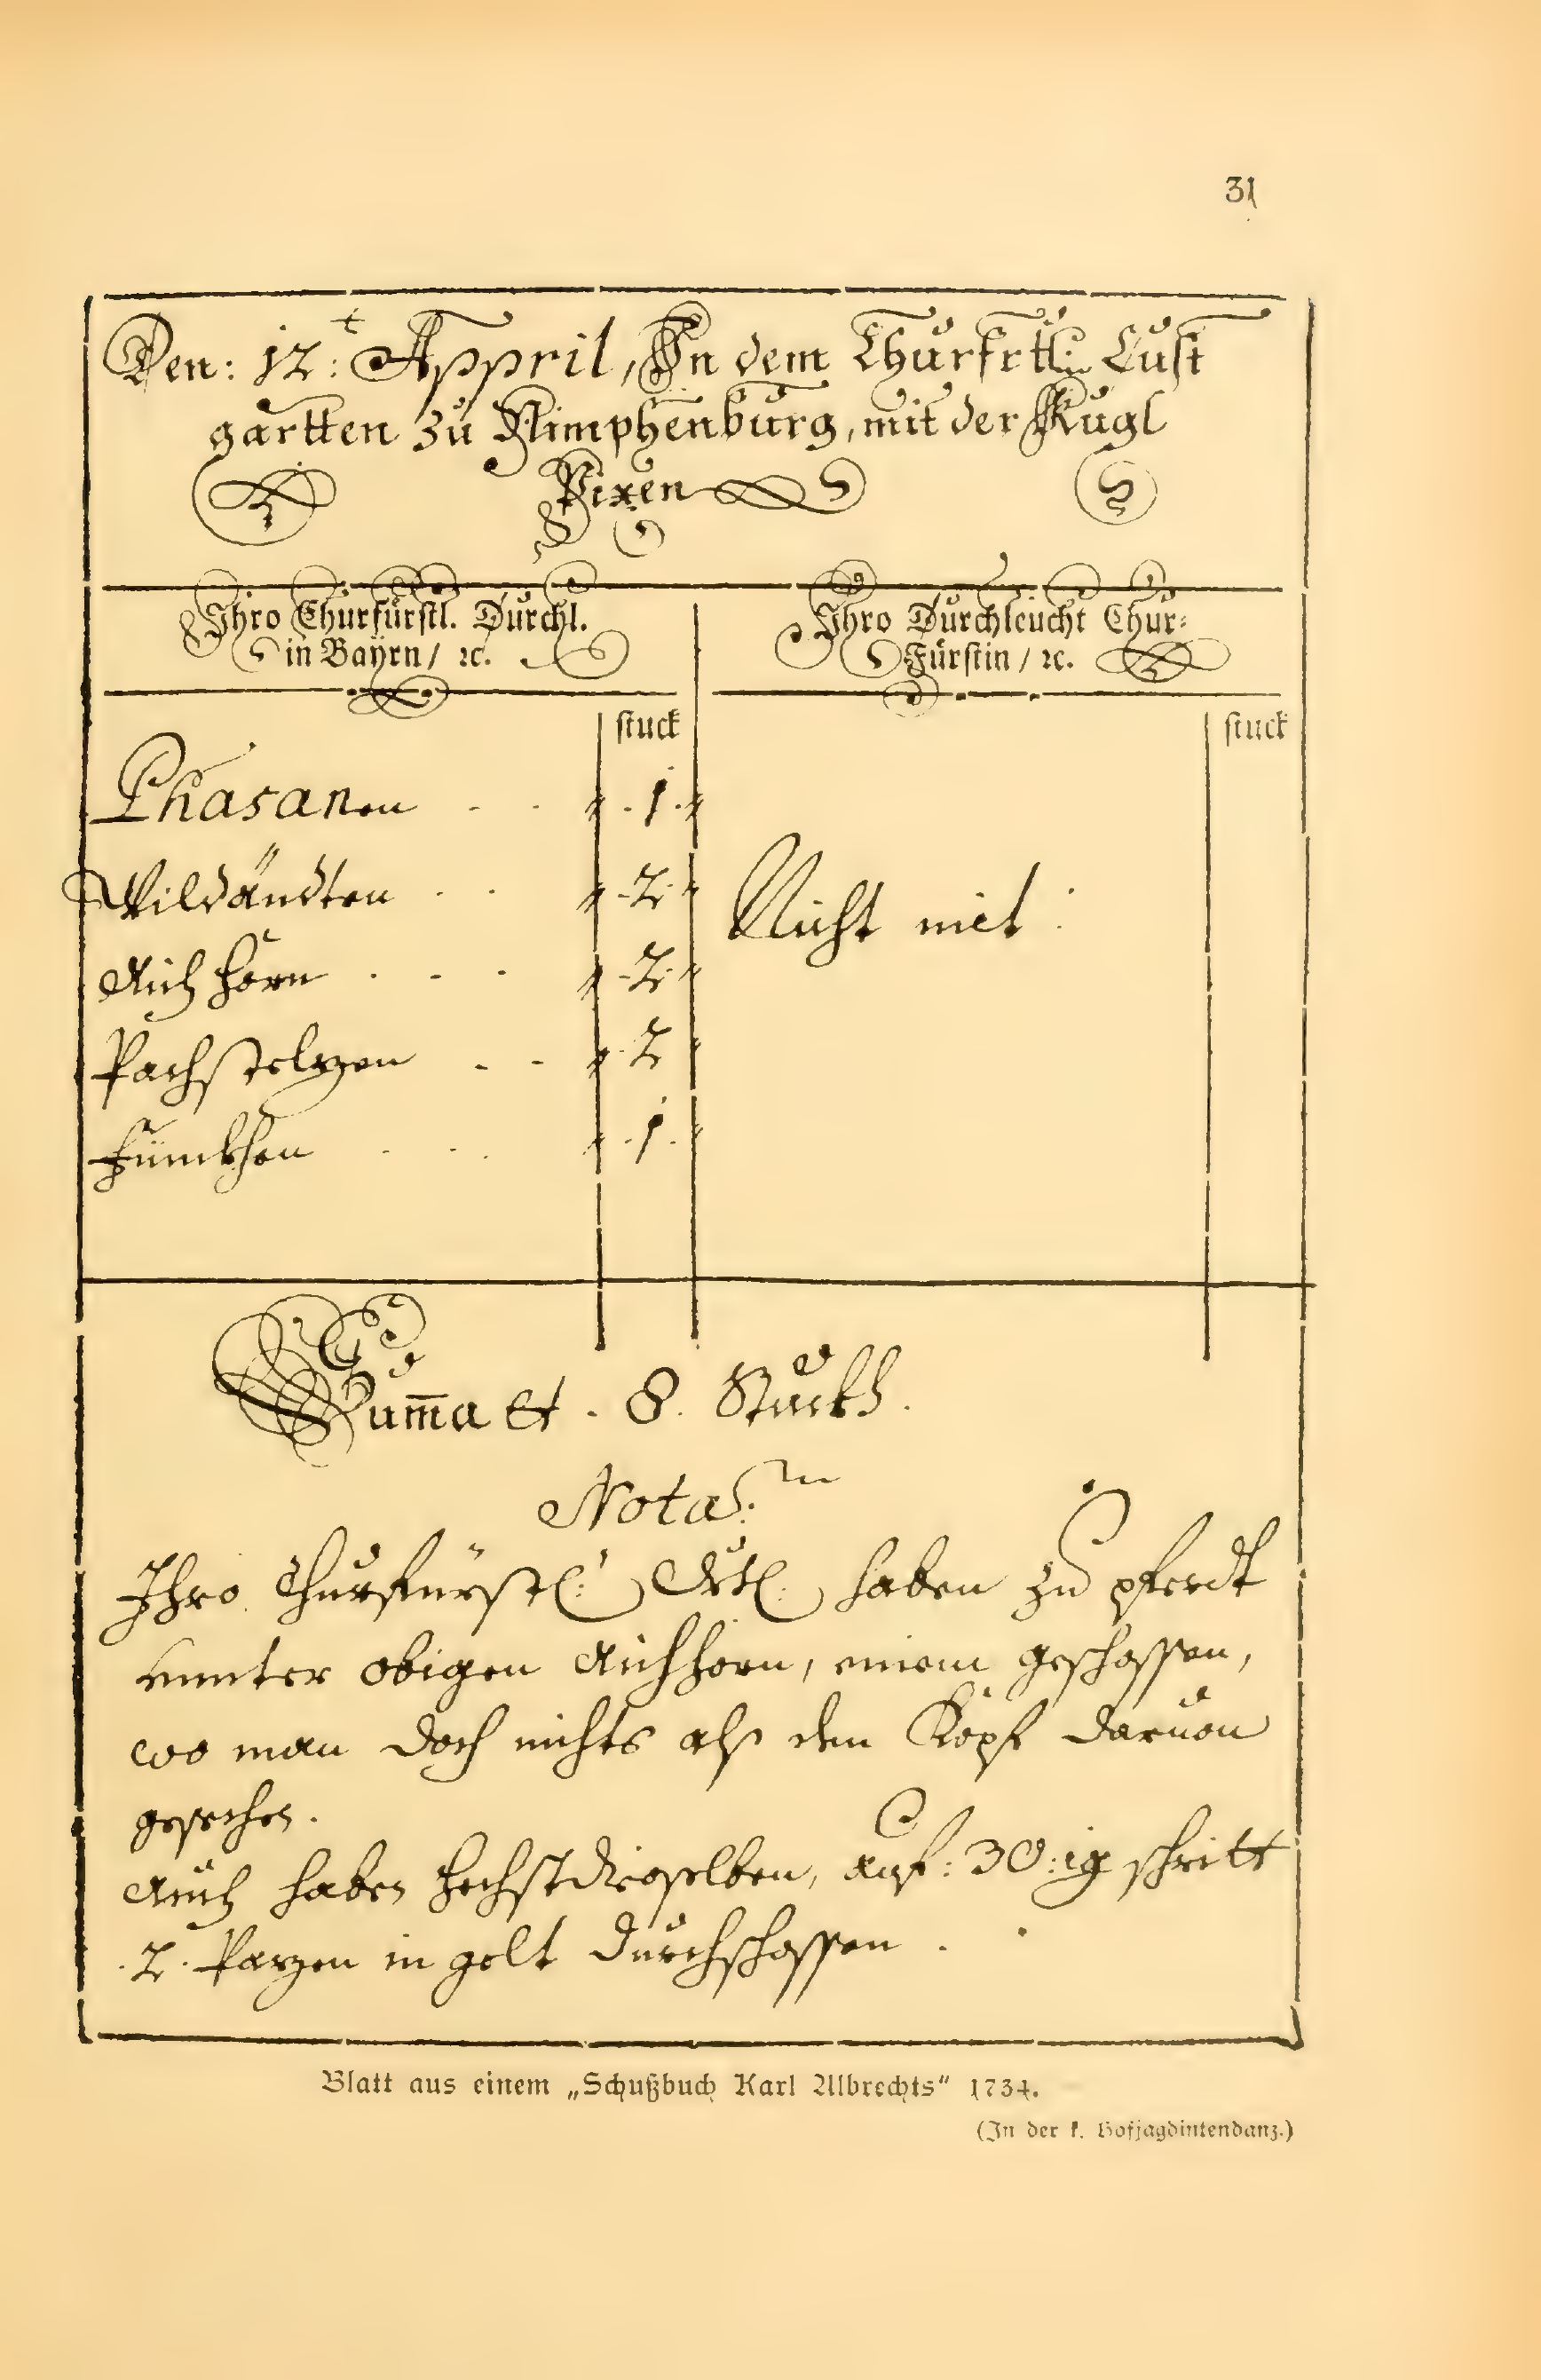 31
Den: 12:t Appril, In dem Churfrtl: Lust
gartten zu Nimphenburg, mit der Kugl
Pixen
Ihro Churfürstl. Durchl.
in Bayrn / ꝛc.
Ihro Durchleucht Chur-
Fürstin / ꝛc.
stuck
stuck
Phasanen - - . 1 .
Wildändten . . - 2 -
Nicht mit :
Aichhorn . - - - 2 -
Pachstelzen - - . 2
Finckhen . . . 1 .
Suma et . 8. Stuckh .
Nota:
Ihro Churfürstl: Drtl: haben zu pferdt
unnter obigen Aichhorn, einem geschossen,
wo man doch nichts alß den Kopf daruon
gesechen.
Auch haben hochstdieselben, auf: 30:ig schritt
. 2 . Pazen in gelt durchschossen .
Blatt aus einem „Schußbuch Karl Albrechts“ 1734.
(In der k. Hofjagdintendanz.)